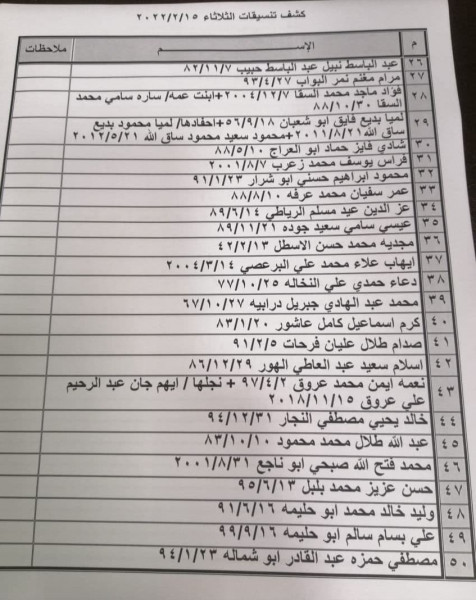 كشف تنسيقات الثلاثاء ٢٠٢٢/٢/١٥
م الإســـــم ملاحظات
٢٦ عبد الباسط نبيل عبد الباسط حبيب ٨٢/١١/٧
٢٧ مرام مغنم نمر البواب ٩٣/٤/٢٧
٢٨ فؤاد ماجد محمد السقا ٢٠٠٤/١٢/٧+ابنت عمه/ ساره سامي محمد
السقا ٨٨/١٠/٣٠
٢٩ لميا بديع فايق ابو شعبان ٥٦/٩/١٨+احفادها/ لميا محمود بديع
ساق الله٢٠١١/٨/٢١+محمود سعيد محمود ساق الله ٢٠١٢/٥/٢١
٣٠ شادي فايز حماد ابو العراج ٨٨/٥/١٠
٣١ فراس يوسف محمد زعرب ٢٠٠١/٨/٧
٣٢ محمود ابراهيم حسني ابو شرار ٩١/١/٢٣
٣٣ عمر سفيان محمد عرفه ٨٨/٨/١٠
٣٤ عز الدين عيد مسلم الرياطي ٨٩/٦/١٤
٣٥ عيسي سامي سعيد جوده ٨٩/١١/٢١
٣٦ مجديه محمد حسن الاسطل ٤٢/٢/١٣
٣٧ ايهاب علاء محمد علي البرعصي ٢٠٠٤/٣/١٤
٣٨ دعاء حمدي علي النخاله ٧٩/١٠/٢٥
٣٩ محمد عبد الهادي جبريل درابيه ٦٧/١٠/٢٧
٤٠ كرم اسماعيل كامل عاشور ٨٣/١/٢٠
٤١ صدام طلال عليان فرحات ٩١/٢/٥
٤٢ اسلام سعيد عبد العاطي الهور ٨٦/١٢/٢٩
٤٣ نعمه ايمن محمد عروق ٩٧/٤/٢ + نجلها/ ايهم جان عبد الرحيم
علي عروق ٢٠١٨/١١/١٥
٤٤ خالد يحيي مصطفي النجار ٩٤/١٢/٣١
٤٥ عبد الله طلال محمد محمود ٨٣/١٠/١٠
٤٦ محمد فتح الله صبحي ابو ناجع ٢٠٠١/٨/٣١
٤٧ حسن عزيز محمد بلبل ٩٥/٦/١٣
٤٨ وليد خالد محمد ابو حليمه ٩١/٦/١٦
٤٩ علي بسام سالم ابو حليمه ٩٩/٩/١٦
٥٠ مصطفي حمزه عبد القادر ابو شماله ٩٤/١/٢٣